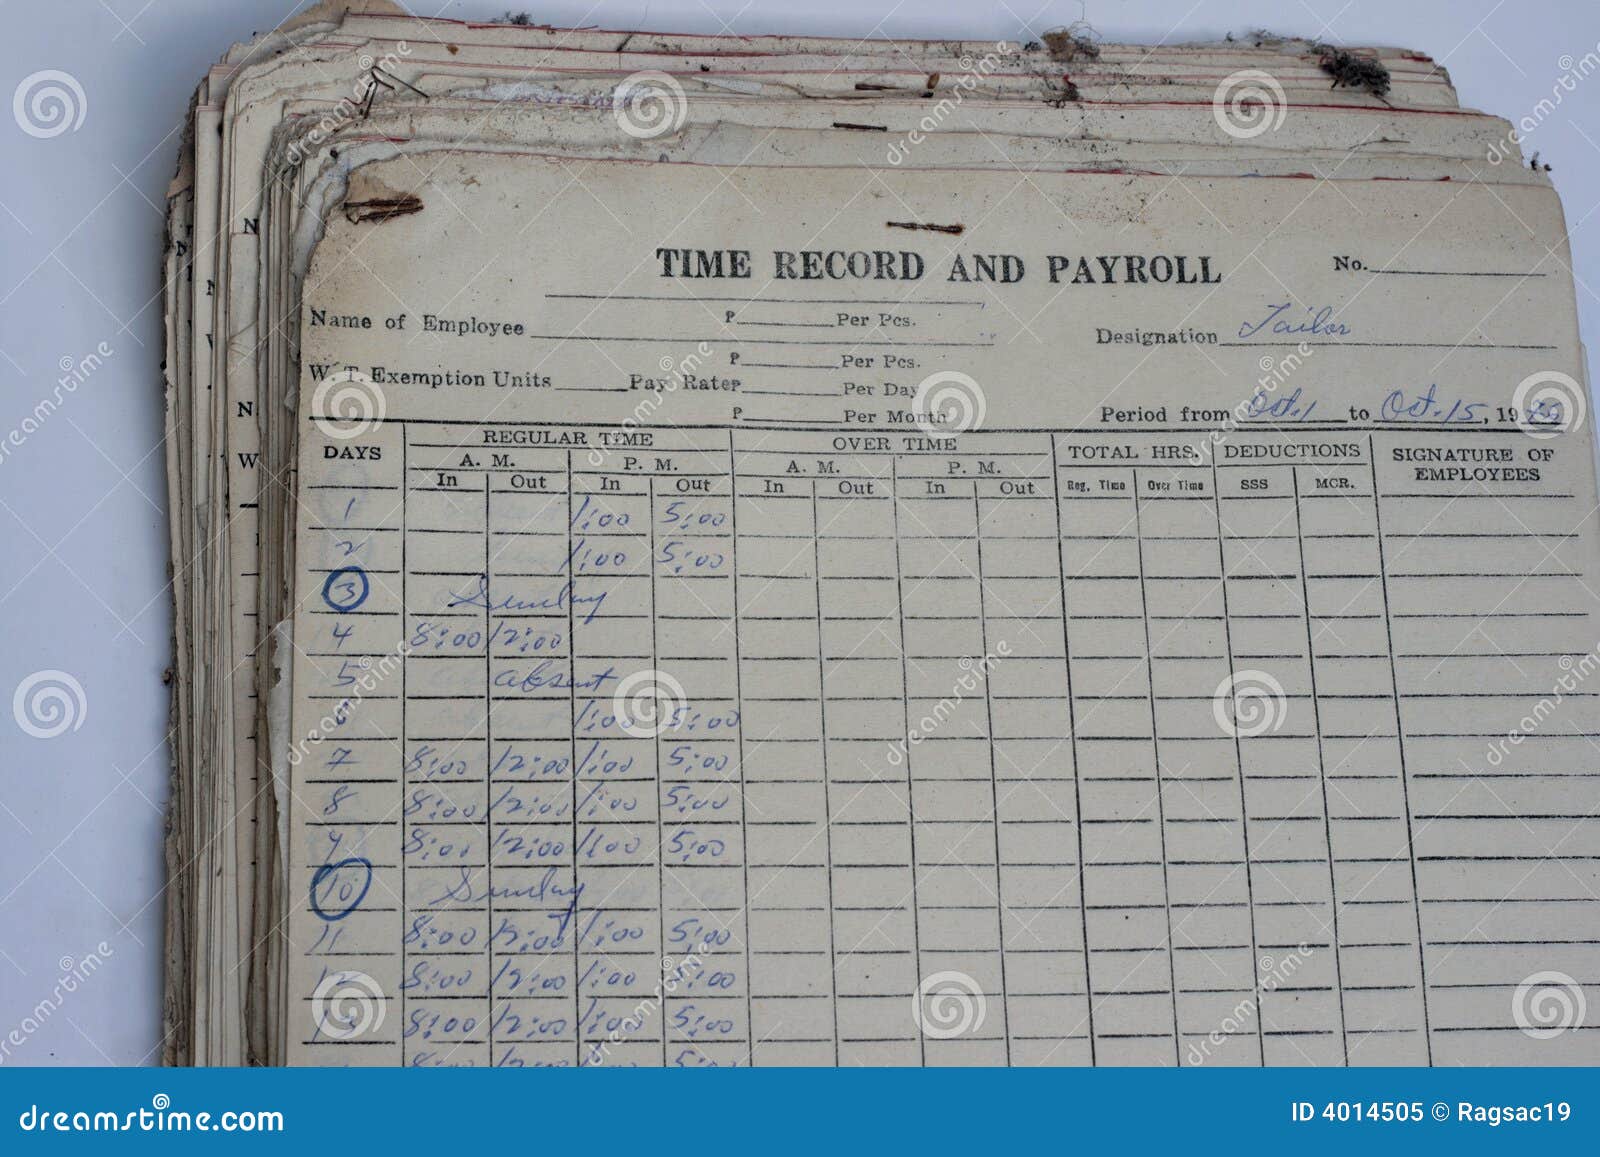 TIME RECORD AND PAYROLL
No.
Name of Employee P Per Pcs. Designation Tailor
P Per Pcs.
W. T. Exemption Units Pay Rate P Per Day
P Per Month Period from Oct. 1 to Oct. 15, 19
DAYS REGULAR TIME OVER TIME TOTAL HRS. DEDUCTIONS SIGNATURE OF EMPLOYEES
A. M. P. M. A. M. P. M. Reg. Time Over Time SSS MCR.
In Out In Out In Out In Out
1 1:00 5:00
2 1:00 5:00
3 Sunday
4 8:00 12:00
5 absent
6 1:00 5:00
7 8:00 12:00 1:00 5:00
8 8:00 12:00 1:00 5:00
9 8:00 12:00 1:00 5:00
10 Sunday
11 8:00 12:00 1:00 5:00
12 8:00 12:00 1:00 5:00
13 8:00 12:00 1:00 5:00
N
N
N
W
dreamstime.com
ID 4014505 © Ragsac19